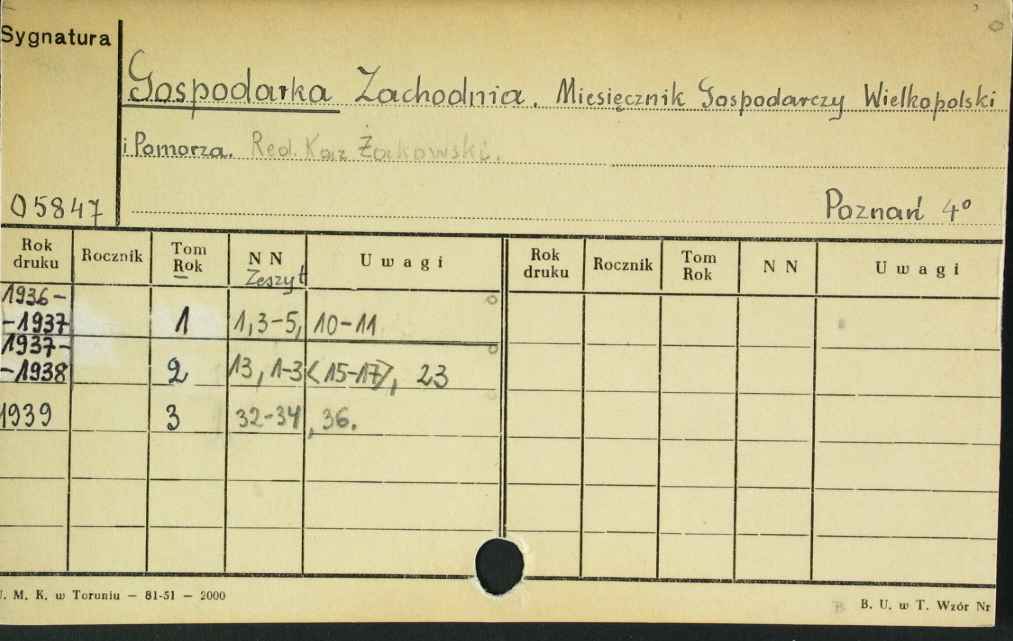 Sygnatura
Gospodarka Zachodnia. Miesięcznik Gospodarczy Wielkopolski
i Pomorza. Red. Kaz Żakowski.
05847 Poznań 4°
Rok druku Rocznik Tom Rok N N Zeszyt Uwagi Rok druku Rocznik Tom Rok N N Uwagi
1936-
-1937 1 1,3-5, 10-11
1937-
-1938 2 13, 1-3<15-17>, 23
1939 3 32-34, 36.
U. M. K. w Toruniu — 81-51 — 2000 B. U. w T. Wzór Nr